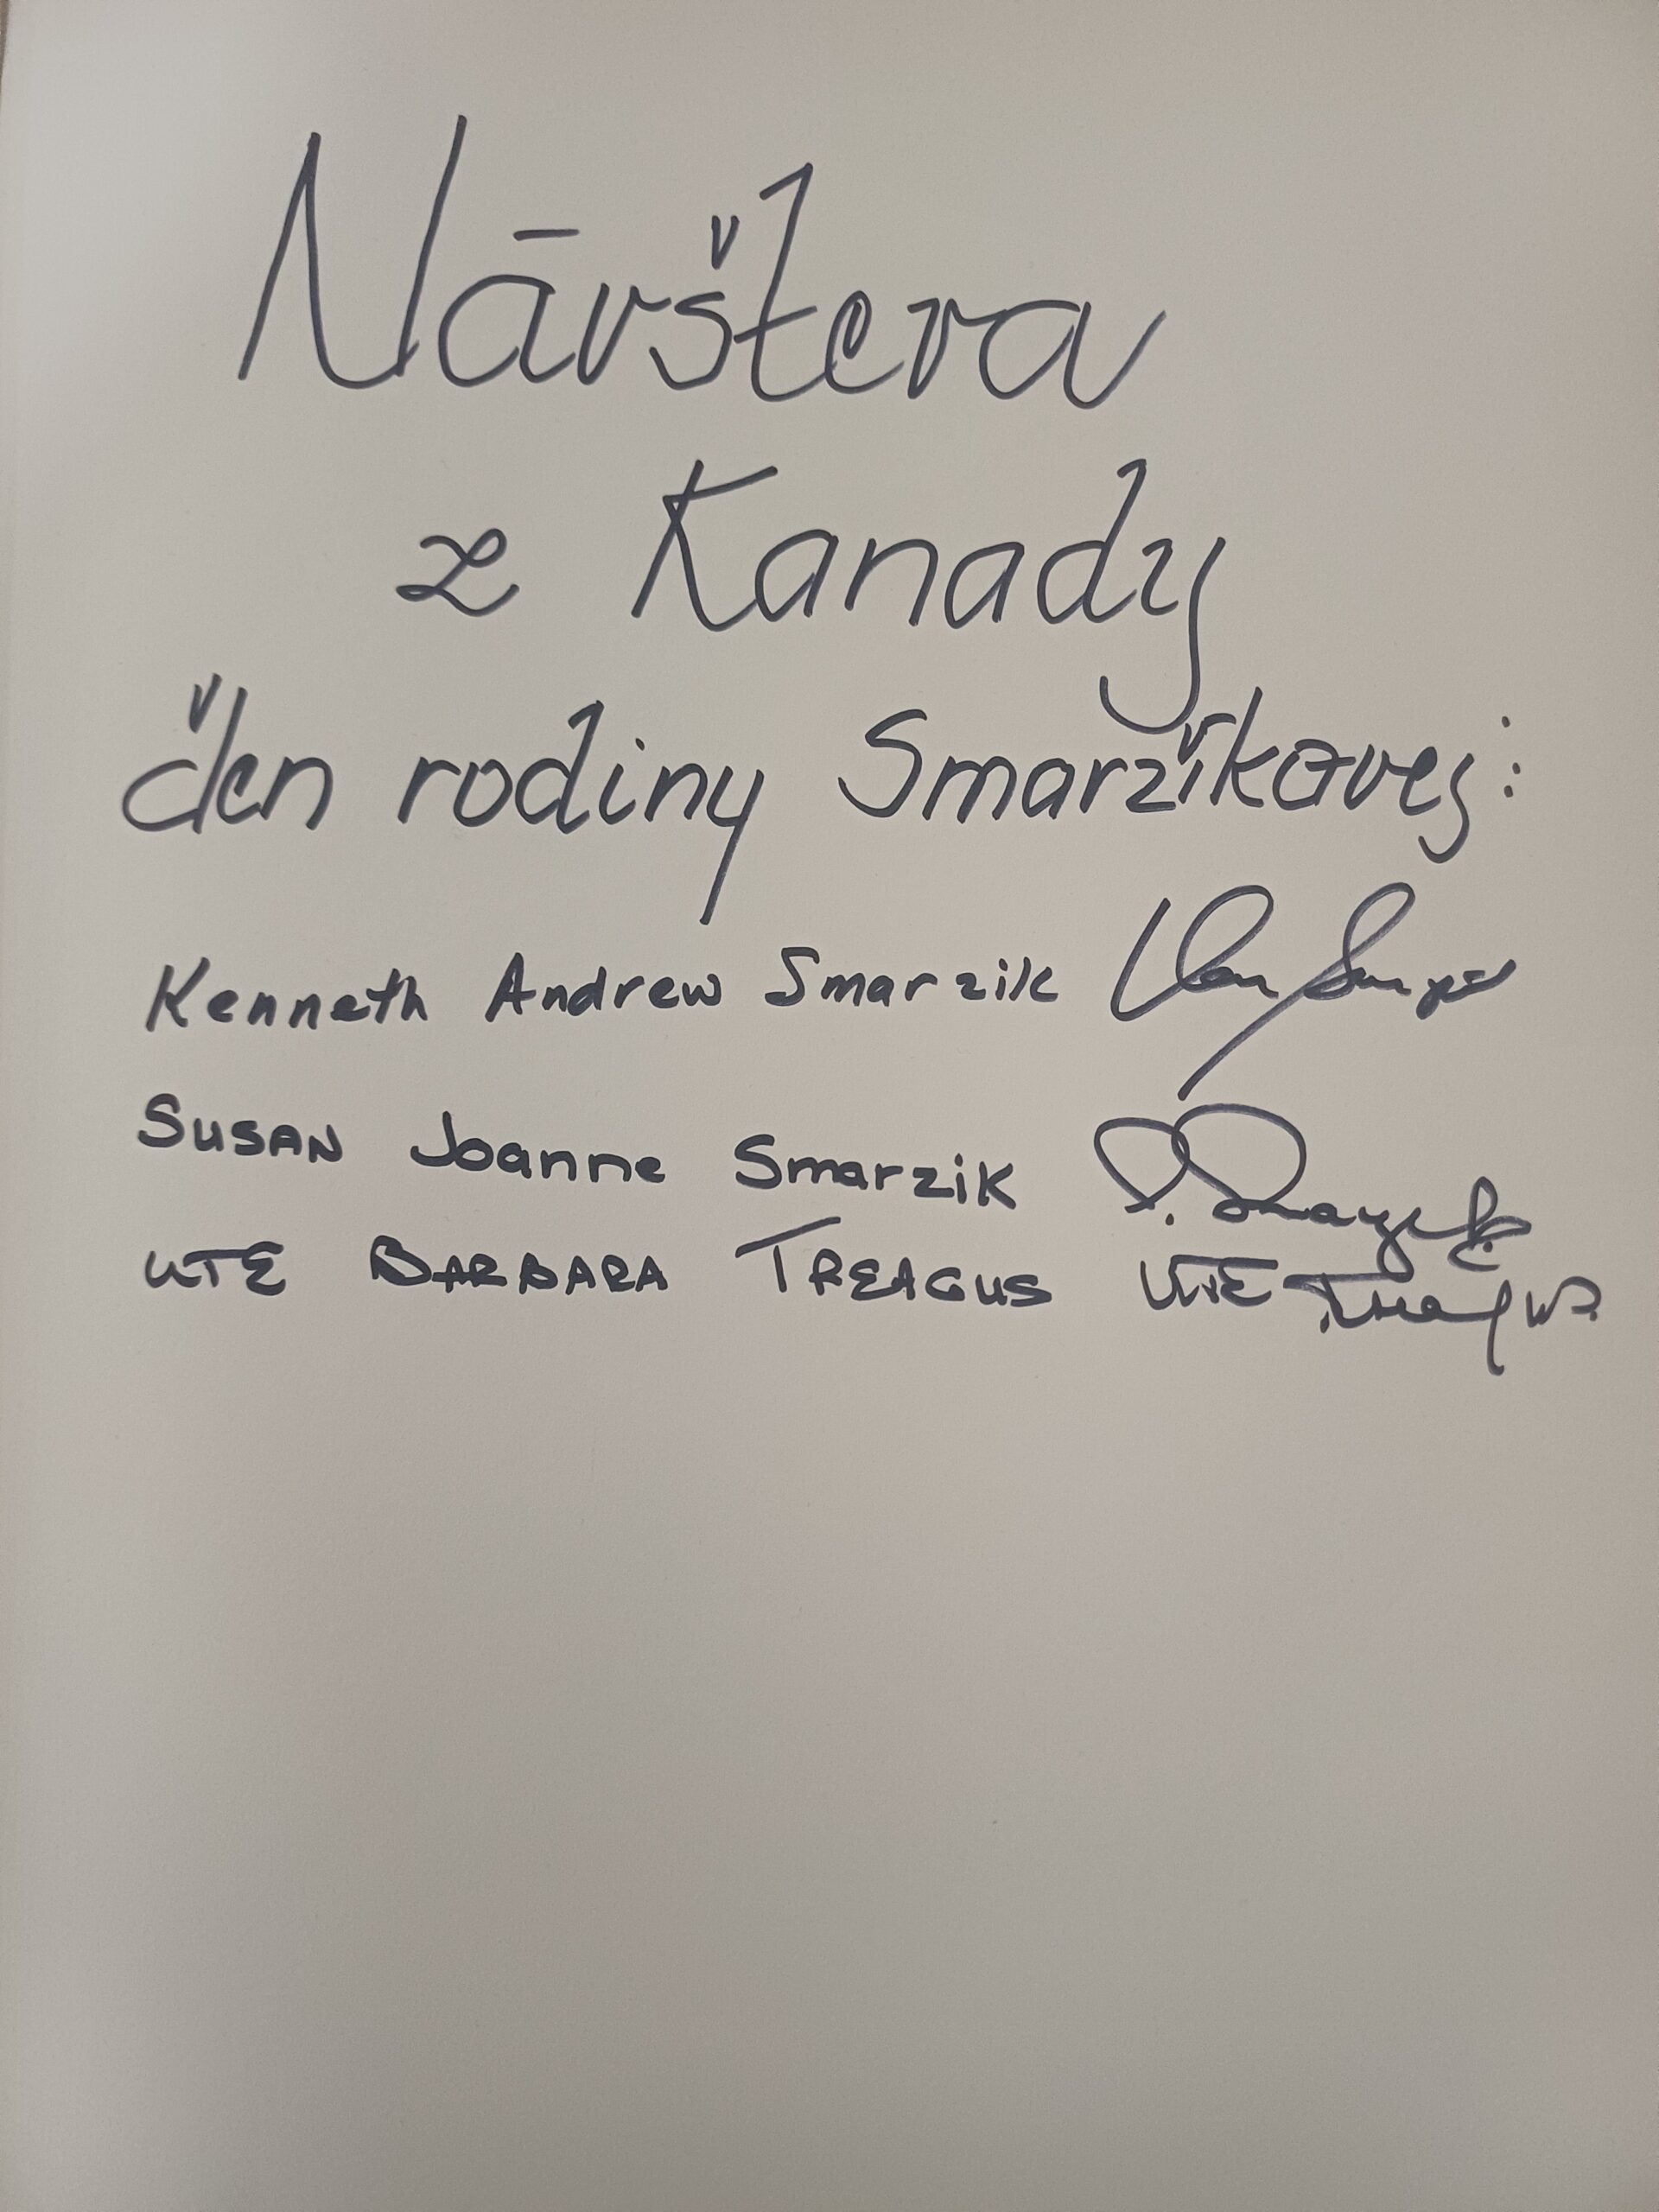 Návšteva
z Kanady
člen rodiny Smaržíkovej:
Kenneth Andrew Smarzik
SUSAN Joanne Smarzik
UTE BARBARA TREAGUS UTE Treagus